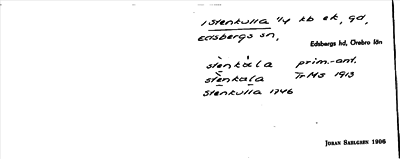 1 Stenkulla 1/4 kb ek, gd,
Edsbergs sn,
Edsbergs hd, Örebro län
stènkála prim.-ant.
stènkala TrMS 1913
Stenkulla 1746
JOHAN SAHLGREN 1906